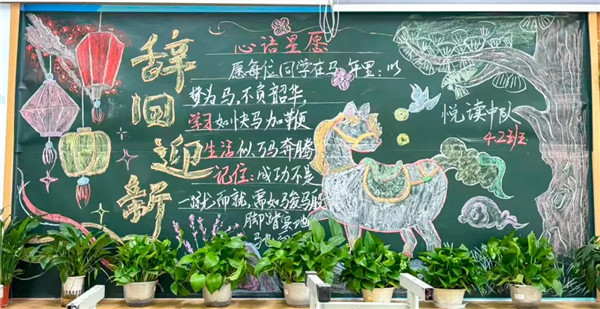 辞旧迎新
心语星愿
愿每位同学在马年里：以
梦为马，不负韶华，
学习如快马加鞭
生活似万马奔腾
记住：成功不是
一蹴而就，需如骏马般
脚踏实地
悦读中队
4.2班